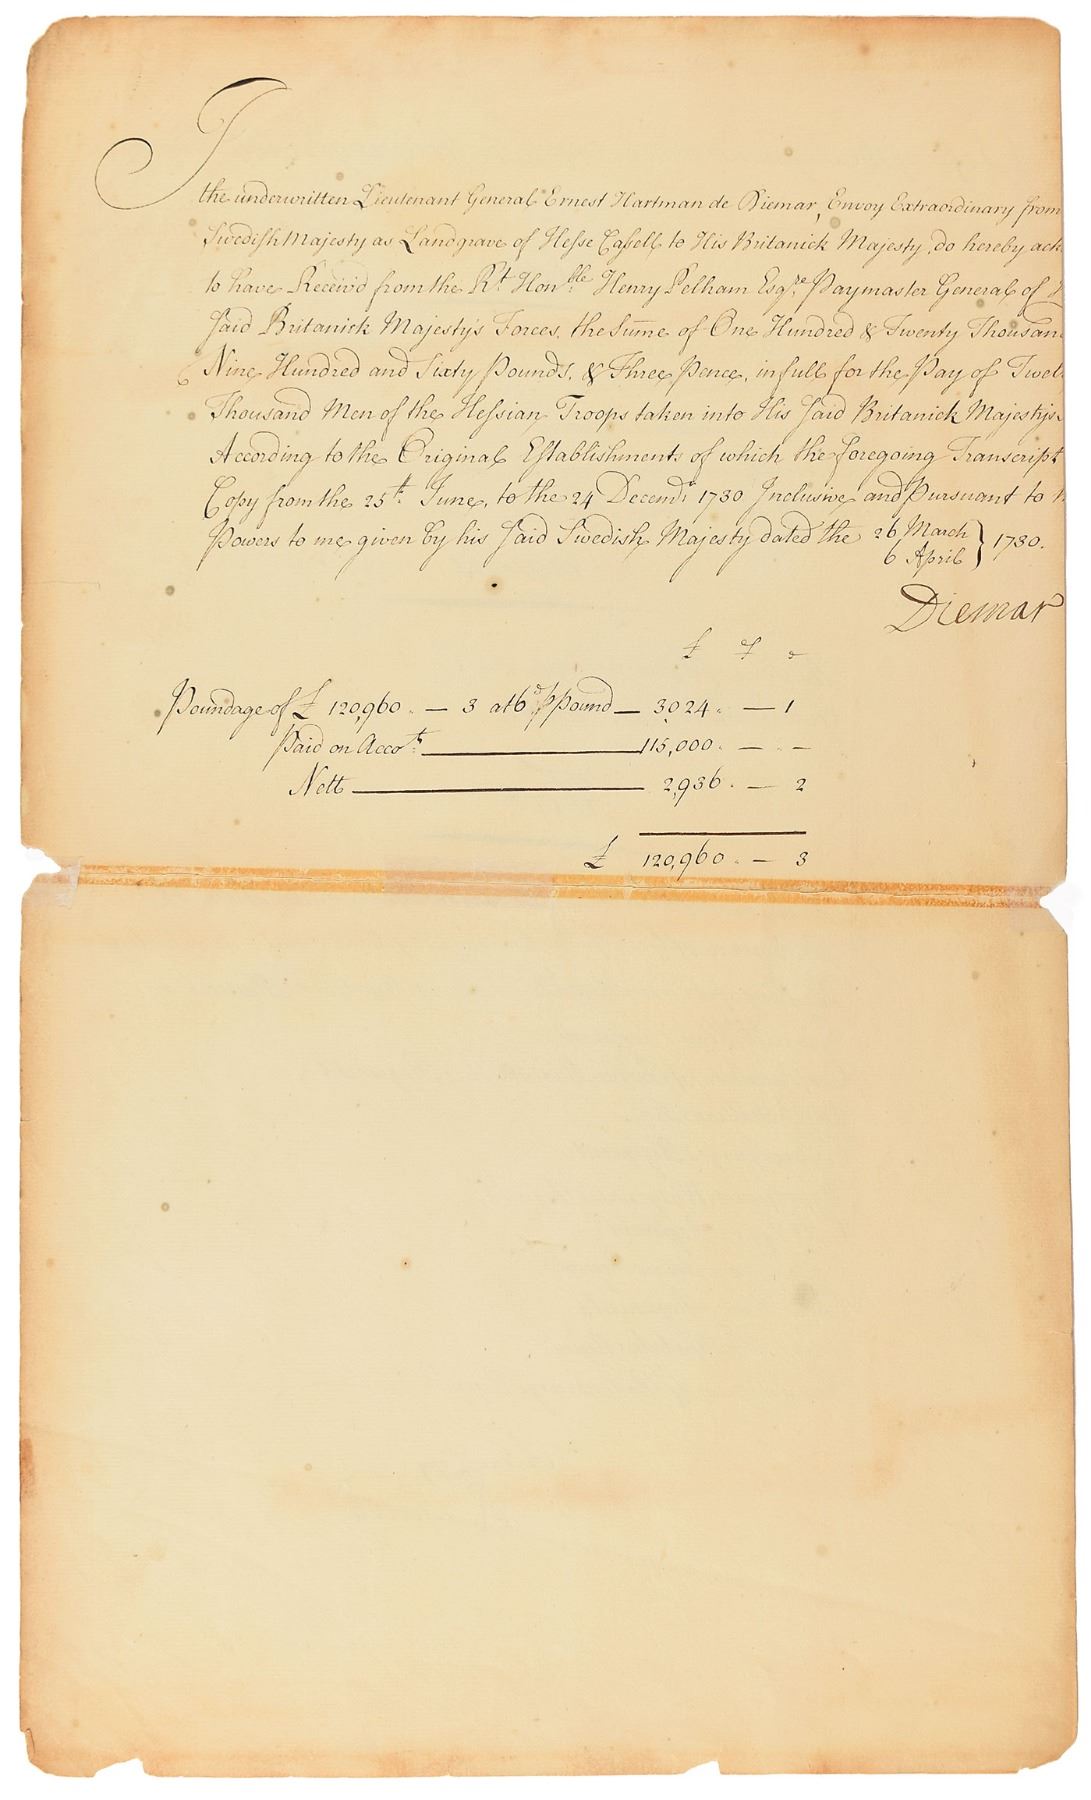 I
the underwritten Lieutenant General Ernest Hartman de Diemar, Envoy Extraordinary from
Swedish Majesty as Landgrave of Hesse Cassell to His Britanick Majesty, do hereby ack
to have Receiv'd from the Rt. Honble. Henry Pelham Esqre. Paymaster General of
Said Britanick Majesty's Forces, the Sume of One Hundred & Twenty Thousan
Nine Hundred and Sixty Pounds, & Three Pence, in full for the Pay of Twel
Thousand Men of the Hessian Troops taken into His Said Britanick Majestys
According to the Original Establishments of which the foregoing Transcript
Copy from the 25th. June, to the 24 Decemb: 1730 Inclusive and Pursuant to
Powers to me given by his Said Swedish Majesty dated the 26 March } 1730.
6 April
Diemar
£ s d
Poundage of £ 120,960 . — 3 at 6d p Pound — 3,024 . — 1
Paid on Accot. — 115,000 . — . —
Nett — 2,936 . — 2
£ 120,960 . — 3